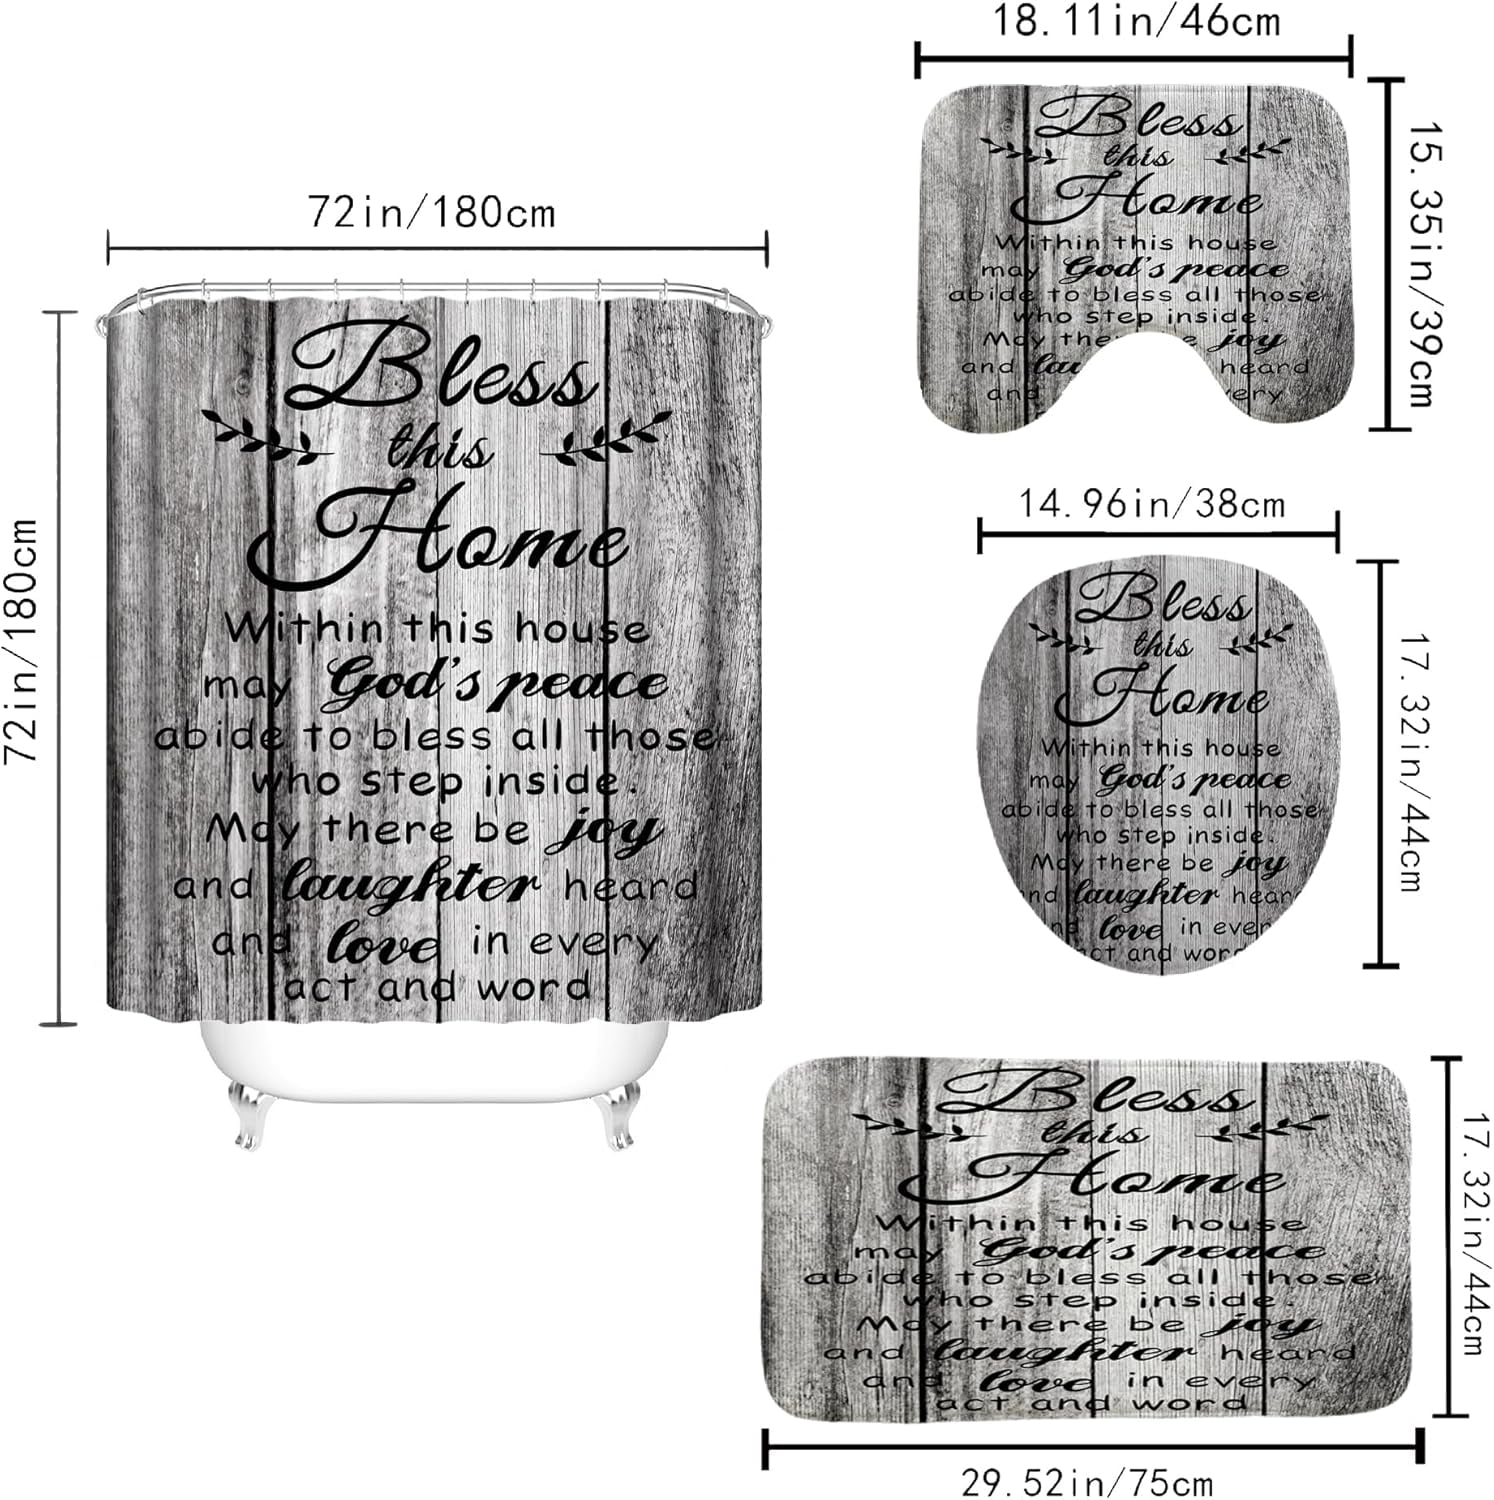 72in/180cm
72in/180cm
Bless
this
Home
Within this house
may God's peace
abide to bless all those
who step inside.
May there be joy
and laughter heard
and love in every
act and word
18.11in/46cm
15.35in/39cm
Bless
this
Home
Within this house
may God's peace
abide to bless all those
who step inside.
May joy
and heard
and
14.96in/38cm
17.32in/44cm
Bless
this
Home
Within this house
may God's peace
abide to bless all those
who step inside.
May there be joy
laughter
love in
and
17.32in/44cm
29.52in/75cm
Bless
this
Home
Within this house
may God's peace
abide to bless all those
who step inside.
May there be joy
and laughter heard
and love in every
act and word